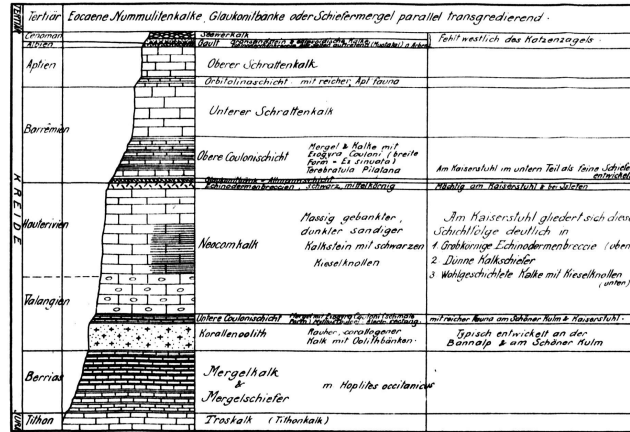 TERTIÄR
Tertiär Eocaene Nummulitenkalke, Glaukonitbänke oder Schiefermergel parallel transgredierend.
Cenoman Seewerkalk
Albien Gault
Fehlt westlich des Katzenzagels.
Aptien Oberer Schrattenkalk.
Orbitolinaschicht mit reicher Apt fauna
Barrêmien Unterer Schrattenkalk
Obere Coulonischicht Mergel & Kalke mit
Exogyra Couloni (breite
Form = Ex sinuata)
Terebratula Pilatana
Am Kaiserstuhl im untern Teil als feine Schiefe
entwickel
Glaukonitbank = Altmannschicht
Echinodermenbreccien, schwarz, mittelkörnig Mächtig am Kaiserstuhl & bei Jaleten
KREIDE
Hauterivien Neocomkalk
Massig gebankter,
dunkler sandiger
Kalkstein mit schwarzen
Kieselknollen
Am Kaiserstuhl gliedert sich diese
Schichtfolge deutlich in
1. Grobkörnige Echinodermenbreccie (oben
2. Dünne Kalkschiefer
3. Wohlgeschichtete Kalke mit Kieselknollen
(unten)
Valangien
Untere Coulonischicht Mergel mit Exogyra Couloni (schmale
mit reicher Fauna am Schöner Kulm & Kaiserstuhl.
Korallenoolith Rauher, corallogener
Kalk mit Oolithbänken.
Typisch entwickelt an der
Bannalp & am Schöner Kulm
Berrias Mergelkalk
&
Mergelschiefer
m Hoplites occitanicus
JURA
Tithon Troskalk (Tithonkalk)